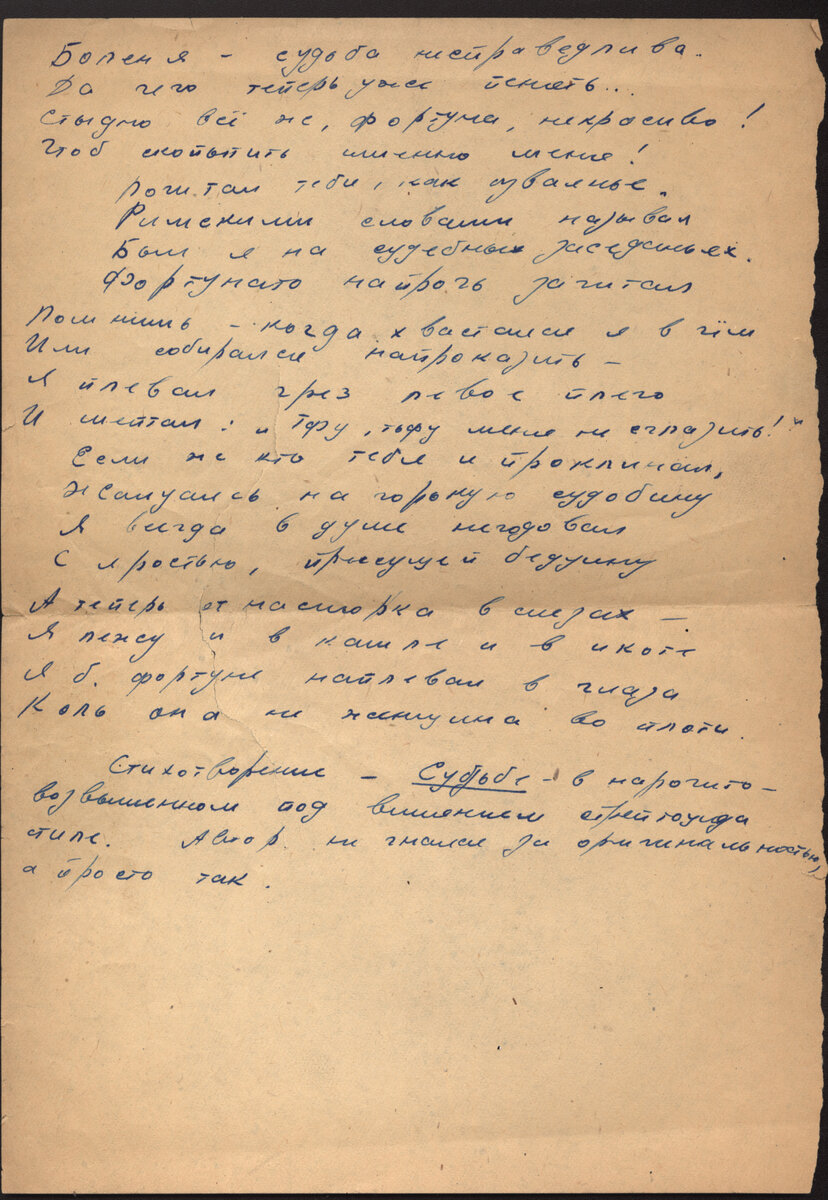 Болен я - судьба несправедлива.
Да чего теперь уже пенять...
Стыдно всё же, фортуна, некрасиво!
Чтоб скопытить именно меня!
Почитал тебя, как изваянье.
Римскими словами называл
Был я на судебных заседаньях.
Фортунато напрочь зачитал
Помнишь - когда хвастался я в чём
Или собирался напроказить -
Я плевал чрез левое плечо
И шептал: "Тфу, тьфу меня не сглазить!"
Если же кто тебя и проклинал,
Жалуясь на горькую судобину
Я всегда в душе негодовал
С яростью, присущей бедуину
А теперь от насморка в слезах -
Я лежу и в кашле и в икоте
Я б. фортуне наплевал в глаза
Коль она не женщина во плоти.
Стихотворение - Судьбе - в нарочито-
возвышенном под влиянием стрептоцида
стиле. Автор не гнался за оригинальностью,
а просто так.